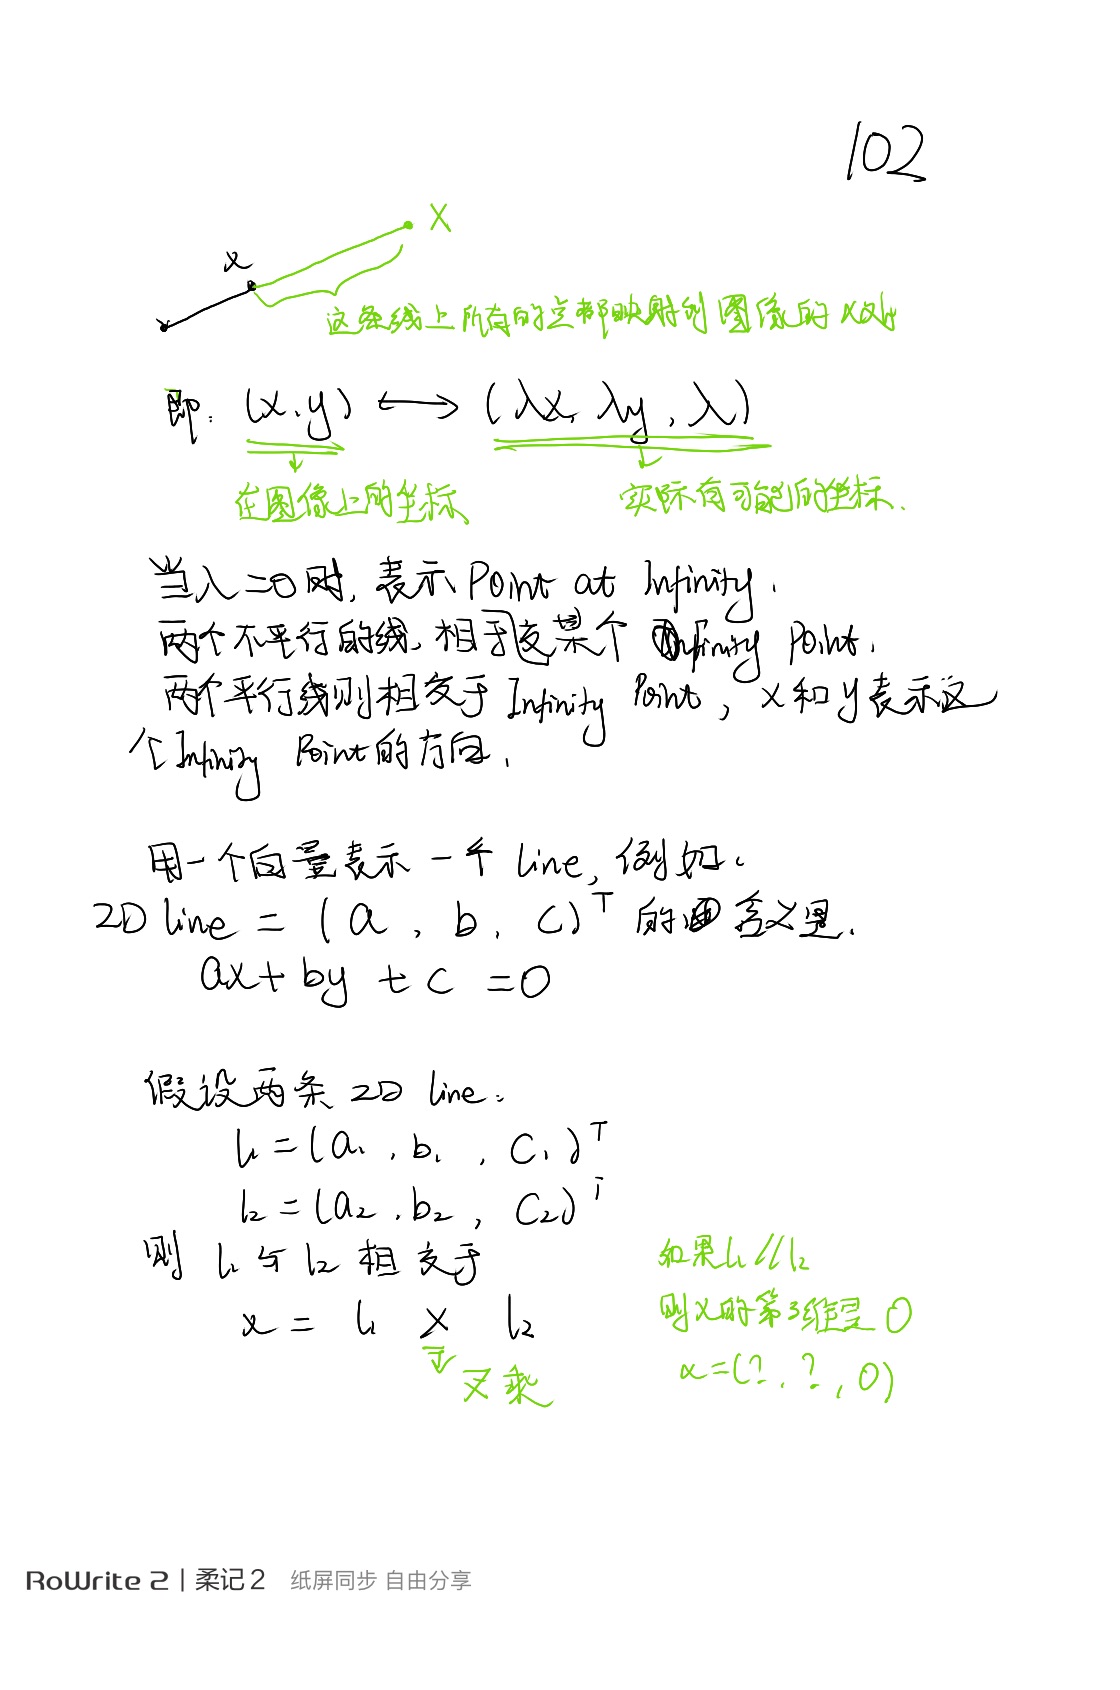 102
X
x
这条线上所有的点都映射到图像的
即: (x, y) ⟷ (λx, λy, λ)
在图像上的坐标
实际有可能的坐标.
当入=0时, 表示 Point at Infinity.
两个不平行的线, 相于某个 Infinity Point.
两个平行线则相交于 Infinity Point, x和y表示这
个 Infinity Point的方向.
用一个向量表示一个 line, 例如:
2D line = (a, b, c)ᵀ 的含义是.
ax+by+c=0
假设两条 2D line:
l₁=(a₁, b₁, c₁)ᵀ
l₂=(a₂, b₂, c₂)ᵀ
则 l₁与l₂相交于
如果l₁//l₂
则x的第3维是0
x = l₁ × l₂
x=(?, ?, 0)
叉乘
RoWrite 2 | 柔记2 纸屏同步 自由分享